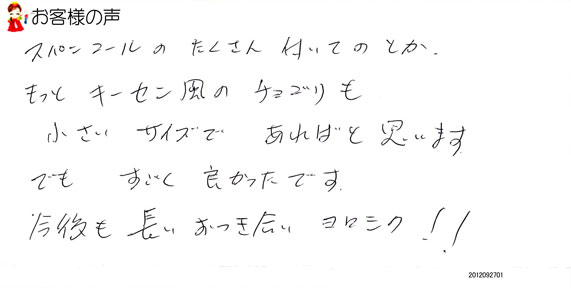 お客様の声
スパンコールの たくさん 付いてのとか、
もっと キーセン風の チョゴリも
小さい サイズで あればと 思います
でも すごく 良かったです。
今後も 長い おつき合い ヨロシク!!
2012092701